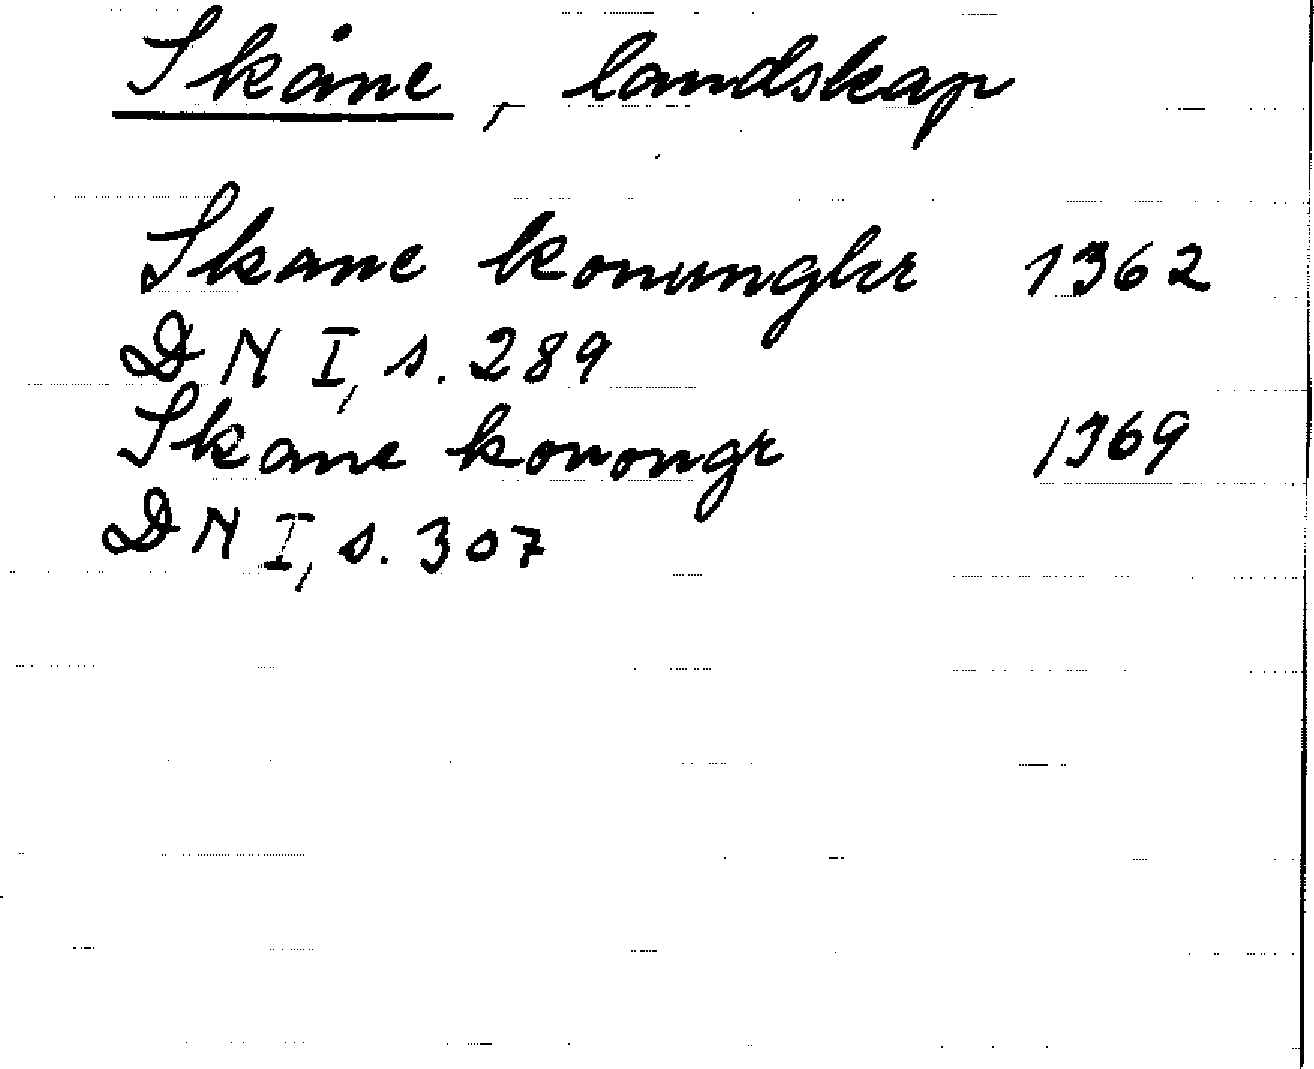 Skåne, landskap
Skane konunghr 1362
DN I, s. 289
Skane konongr 1369
DN I, s. 307